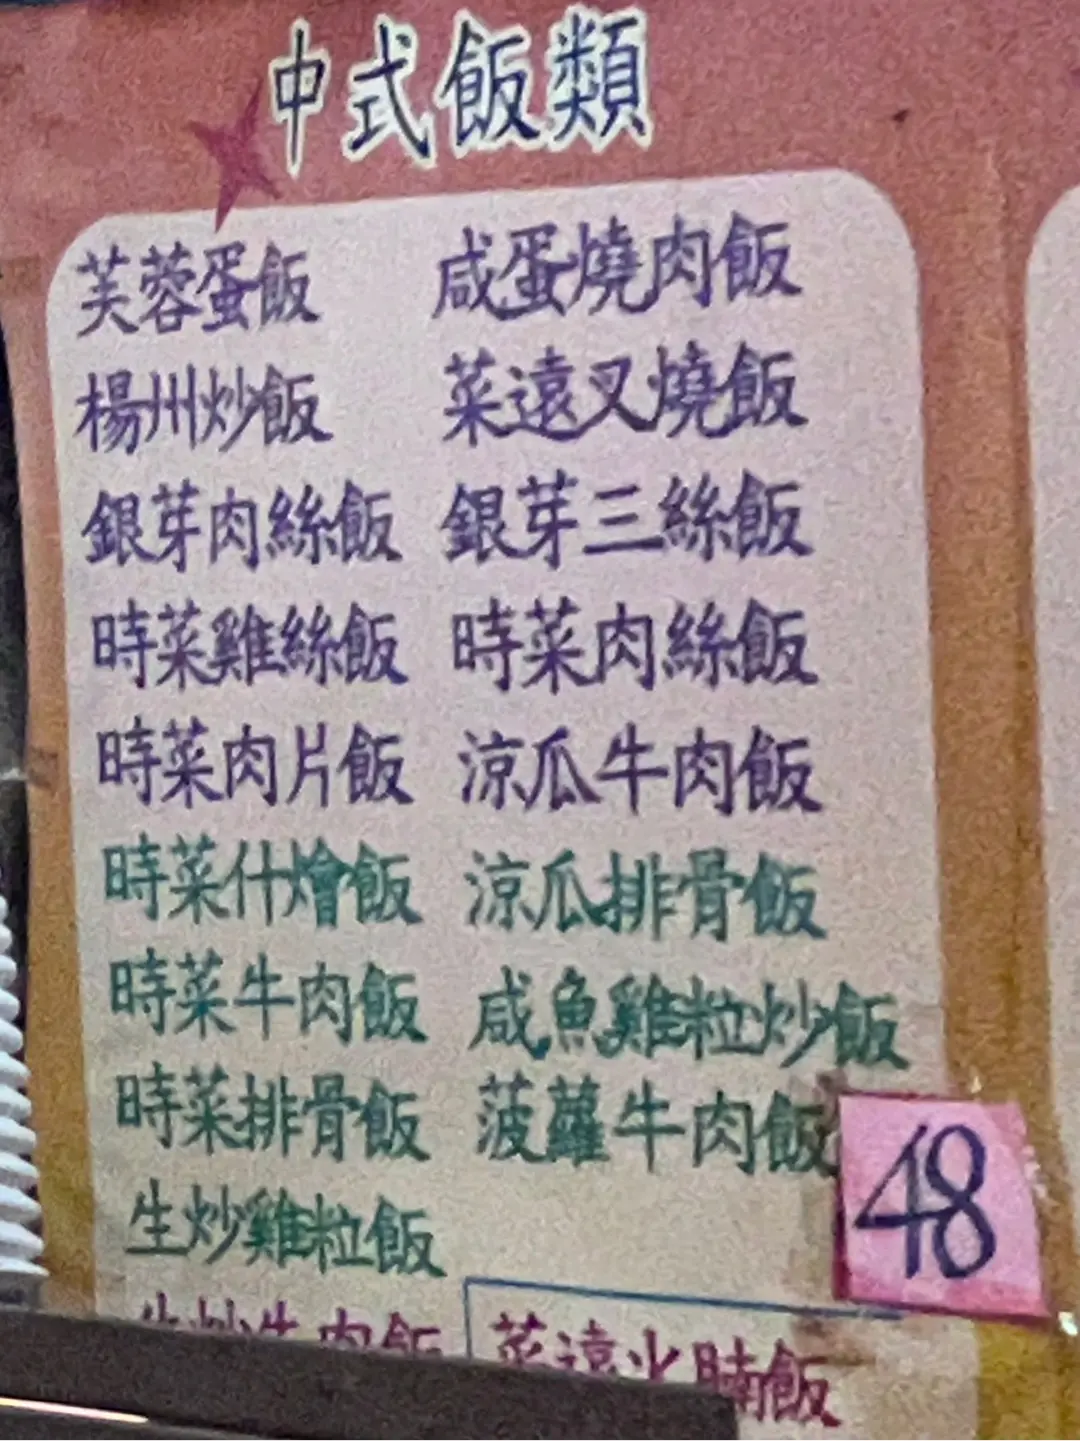 中式飯類
芙蓉蛋飯 咸蛋燒肉飯
楊州炒飯 菜遠叉燒飯
銀芽肉絲飯 銀芽三絲飯
時菜雞絲飯 時菜肉絲飯
時菜肉片飯 涼瓜牛肉飯
時菜什燴飯 涼瓜排骨飯
時菜牛肉飯 咸魚雞粒炒飯
時菜排骨飯 菠蘿牛肉飯
48
生炒雞粒飯
生炒牛肉飯 菜遠火腩飯